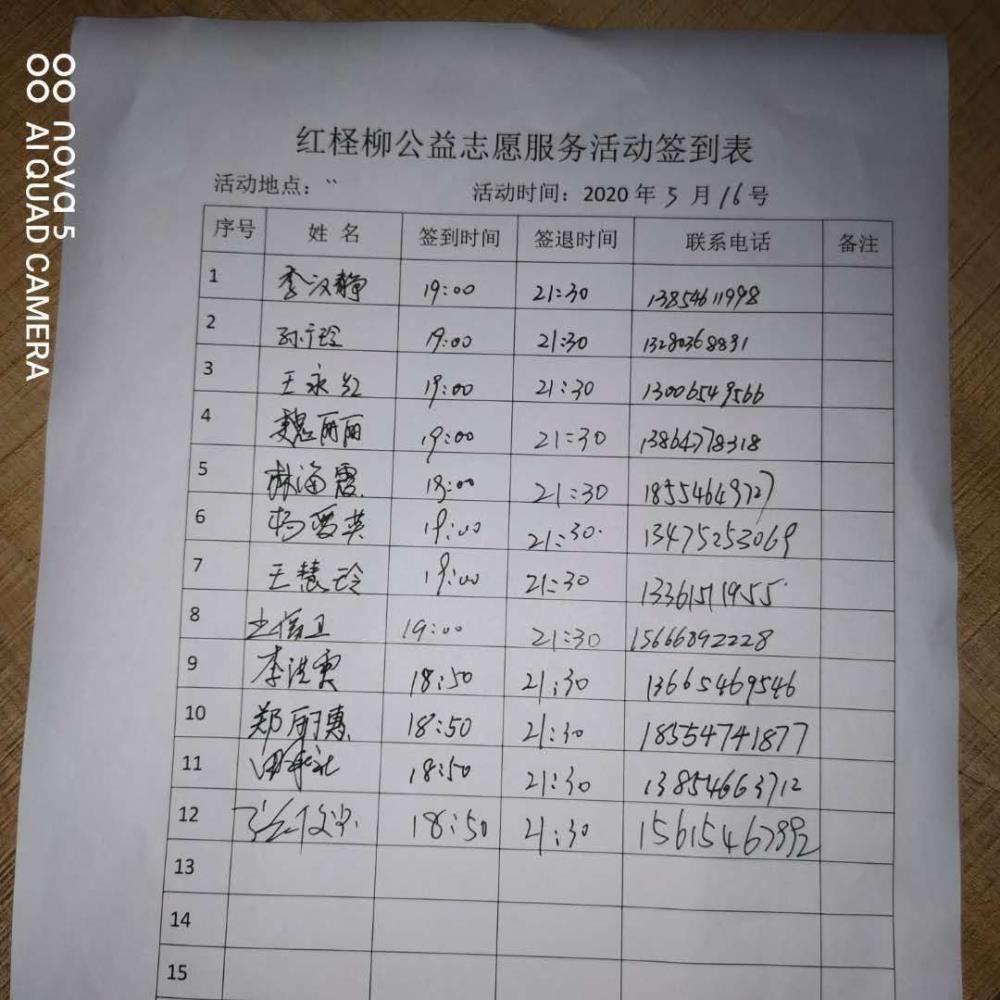 nova 5
AI QUAD CAMERA
红柽柳公益志愿服务活动签到表
活动地点：`` 活动时间：2020 年 5 月 16 号
序号 姓 名 签到时间 签退时间 联系电话 备注
1 李汉静 19:00 21:30 13854611998
2 孙广玲 19:00 21:30 13280368831
3 王永红 19:00 21:30 13006549566
4 魏丽丽 19:00 21:30 13864778318
5 林海霞 19:00 21:30 18554649727
6 杨爱英 19:00 21:30 13475253069
7 王慧玲 19:00 21:30 13361511955
8 19:00 21:30 15666892228
9 李洪霞 18:50 21:30 13665469546
10 郑丽惠 18:50 21:30 18554741877
11 18:50 21:30 13854663712
12 18:50 21:30
13
14
15